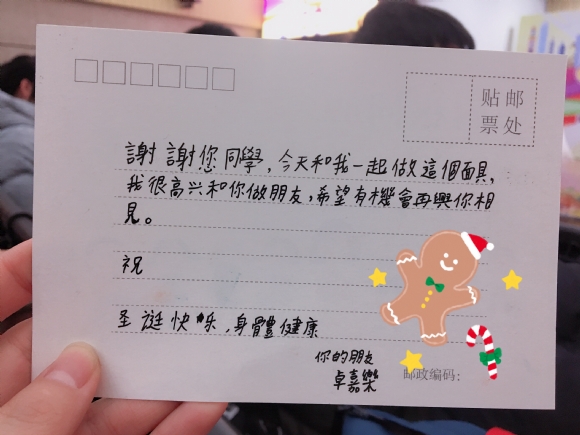 贴邮
票处
謝謝您同學，今天和我一起做這個面具，
我很高兴和你做朋友，希望有機會再與你相
見。
祝
圣诞快乐，身體健康
你的朋友
卓嘉樂
邮政编码：